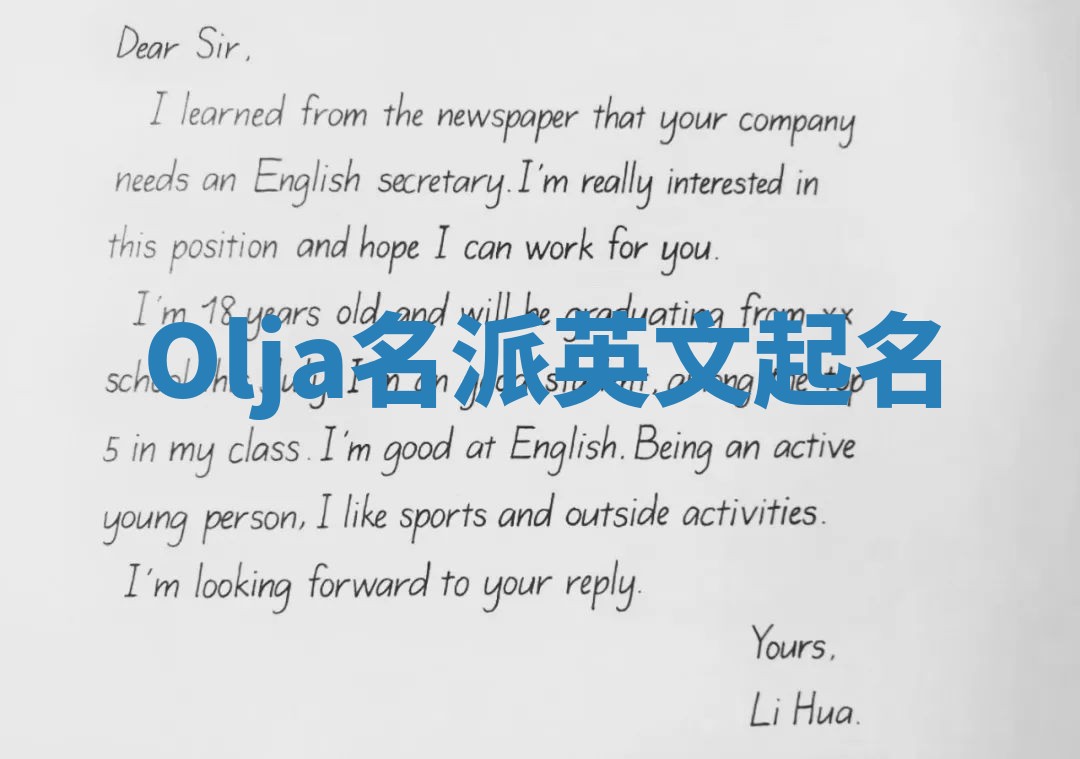 Dear Sir,
I learned from the newspaper that your company
needs an English secretary. I'm really interested in
this position and hope I can work for you.
I'm 18 years old and will be graduating from xx
Olja名派英文起名
school this July. I'm an good student, among the top
5 in my class. I'm good at English. Being an active
young person, I like sports and outside activities.
I'm looking forward to your reply.
Yours,
Li Hua.